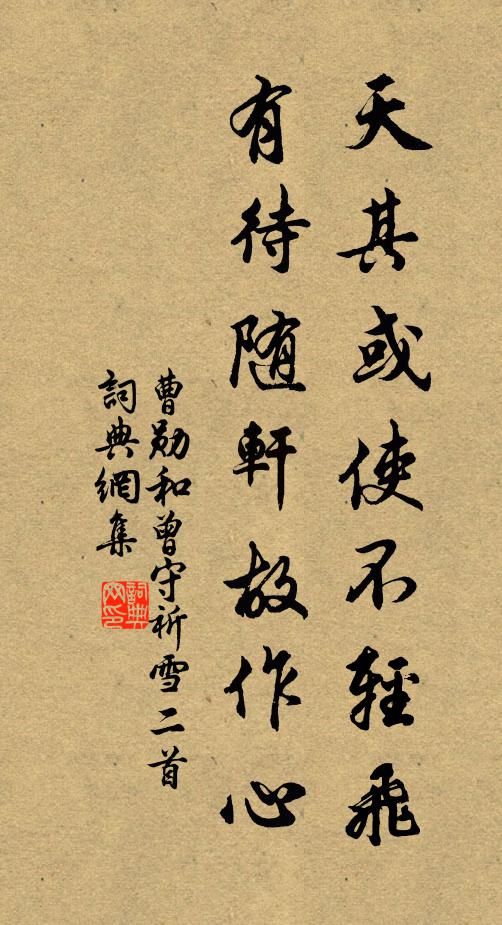 天其或使不輕飛
有待随軒故作心
曹勛和曾守祈雪二首
詞典網集
詞典網印